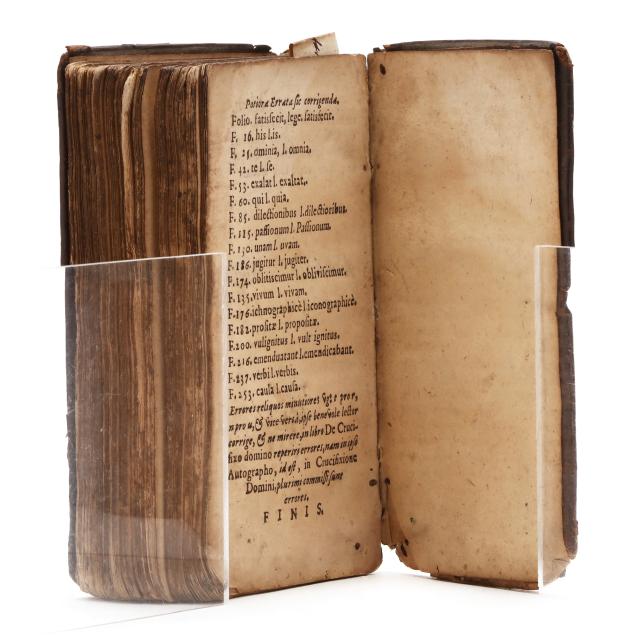 Potiora Errata sic corrigenda.
Folio. fatisfecit, lege, satisfecit.
F. 16. his l.is.
F. 25. ominia, l. omnia.
F. 42. te l. se.
F. 53. exalat l. exaltat.
F. 60. qui l. quia.
F. 85. dilectionibus l.dilectioribus.
F. 115. passionum l. Passionum.
F. 130. unam l. uvam.
F. 186. jugitur l. jugiter.
F. 174. oblitiscimur l. obliviscimur.
F. 135. vivum l. vivam.
F. 176. ichnographicè l iconographicè.
F. 182. prositæ l. propositæ.
F. 200. vulignitus l. vult ignitus.
F. 216. emenduatant l.emendicabant.
F. 237. verbi l. verbis.
F. 253. caula l. causa.
Errores reliquos minutiores vgt o pro r,
n pro u, & vice versâ, ipse benevole lector
corrige, & ne mirere, in libro De Cruci-
fixo domino reperire errores, nam in ipso
Autographo, id est, in Crucifixione
Domini, plurimi commissi sunt
errores.
FINIS.